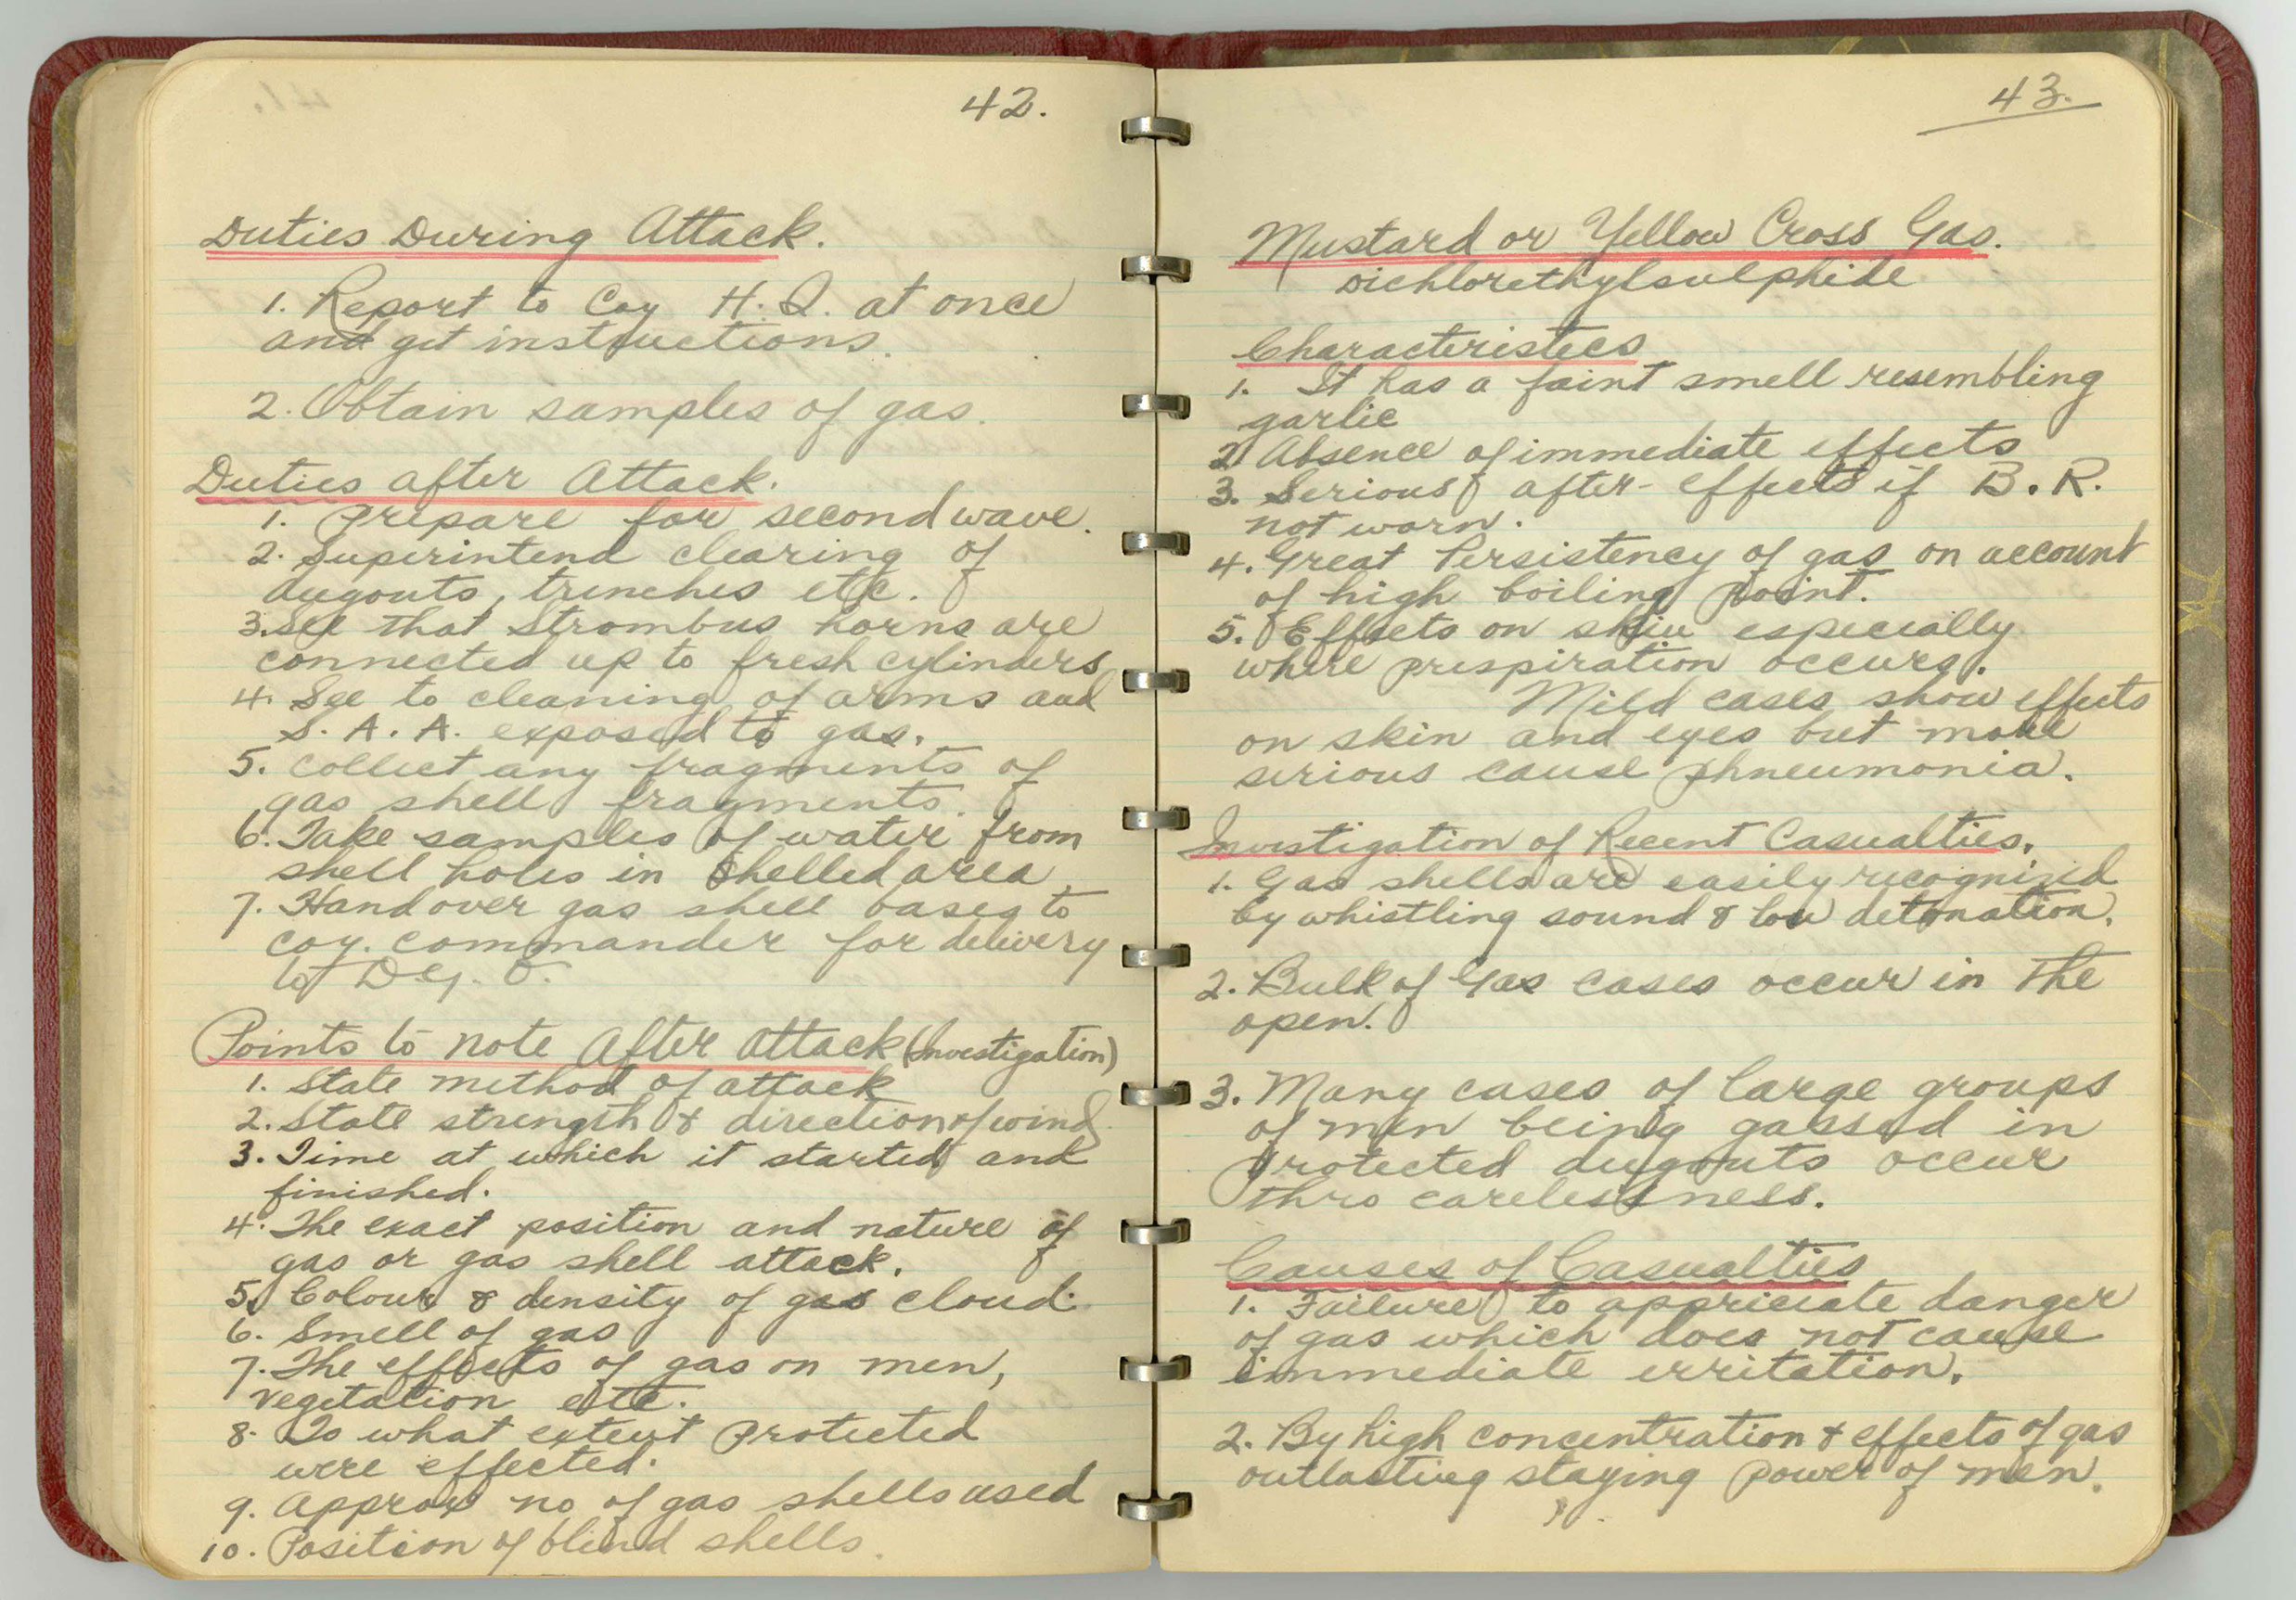 42.
Duties During Attack.
1. Report to Coy H.Q. at once
and get instructions.
2. Obtain samples of gas.
Duties after Attack.
1. Prepare for second wave.
2. Superintend clearing of
dugouts, trenches etc.
3. See that Strombus horns are
connected up to fresh cylinders
4. See to cleaning of arms and
S. A. A. exposed to gas.
5. Collect any fragments of
gas shell fragments.
6. Take samples of water from
shell holes in shelled area
7. Hand over gas shell bases to
coy. commander for delivery
to D.G.O.
Points to note After attack (Investigation)
1. State method of attack
2. State strength & direction of wind
3. Time at which it started and
finished.
4. The exact position and nature of
gas or gas shell attack.
5. Colour & density of gas cloud.
6. Smell of gas
7. The effects of gas on men,
vegetation etc.
8. To what extent protected
were effected.
9. Approx no of gas shells used
10. Position of blind shells.
43.
Mustard or Yellow Cross Gas.
Dichlorethylsulphide
Characteristecs
1. It has a faint smell resembling
garlic
2. Absence of immediate effects
3. Serious after-effects if B.R.
not worn.
4. Great Persistency of gas on account
of high boiling point.
5. Effects on skin especially
where prespiration occurs.
Mild cases show effects
on skin and eyes but more
serious cause phneumonia.
Investigation of Recent Casualties.
1. Gas shells are easily recognized
by whistling sound & low detonation.
2. Bulk of Gas cases occur in the
open.
3. Many cases of large groups
of men being gassed in
protected dugouts occur
thro carelessness.
Causes of Casualties
1. Failure to appriciate danger
of gas which does not cause
immediate irritation.
2. By high concentration & effects of gas
outlasting staying power of men.